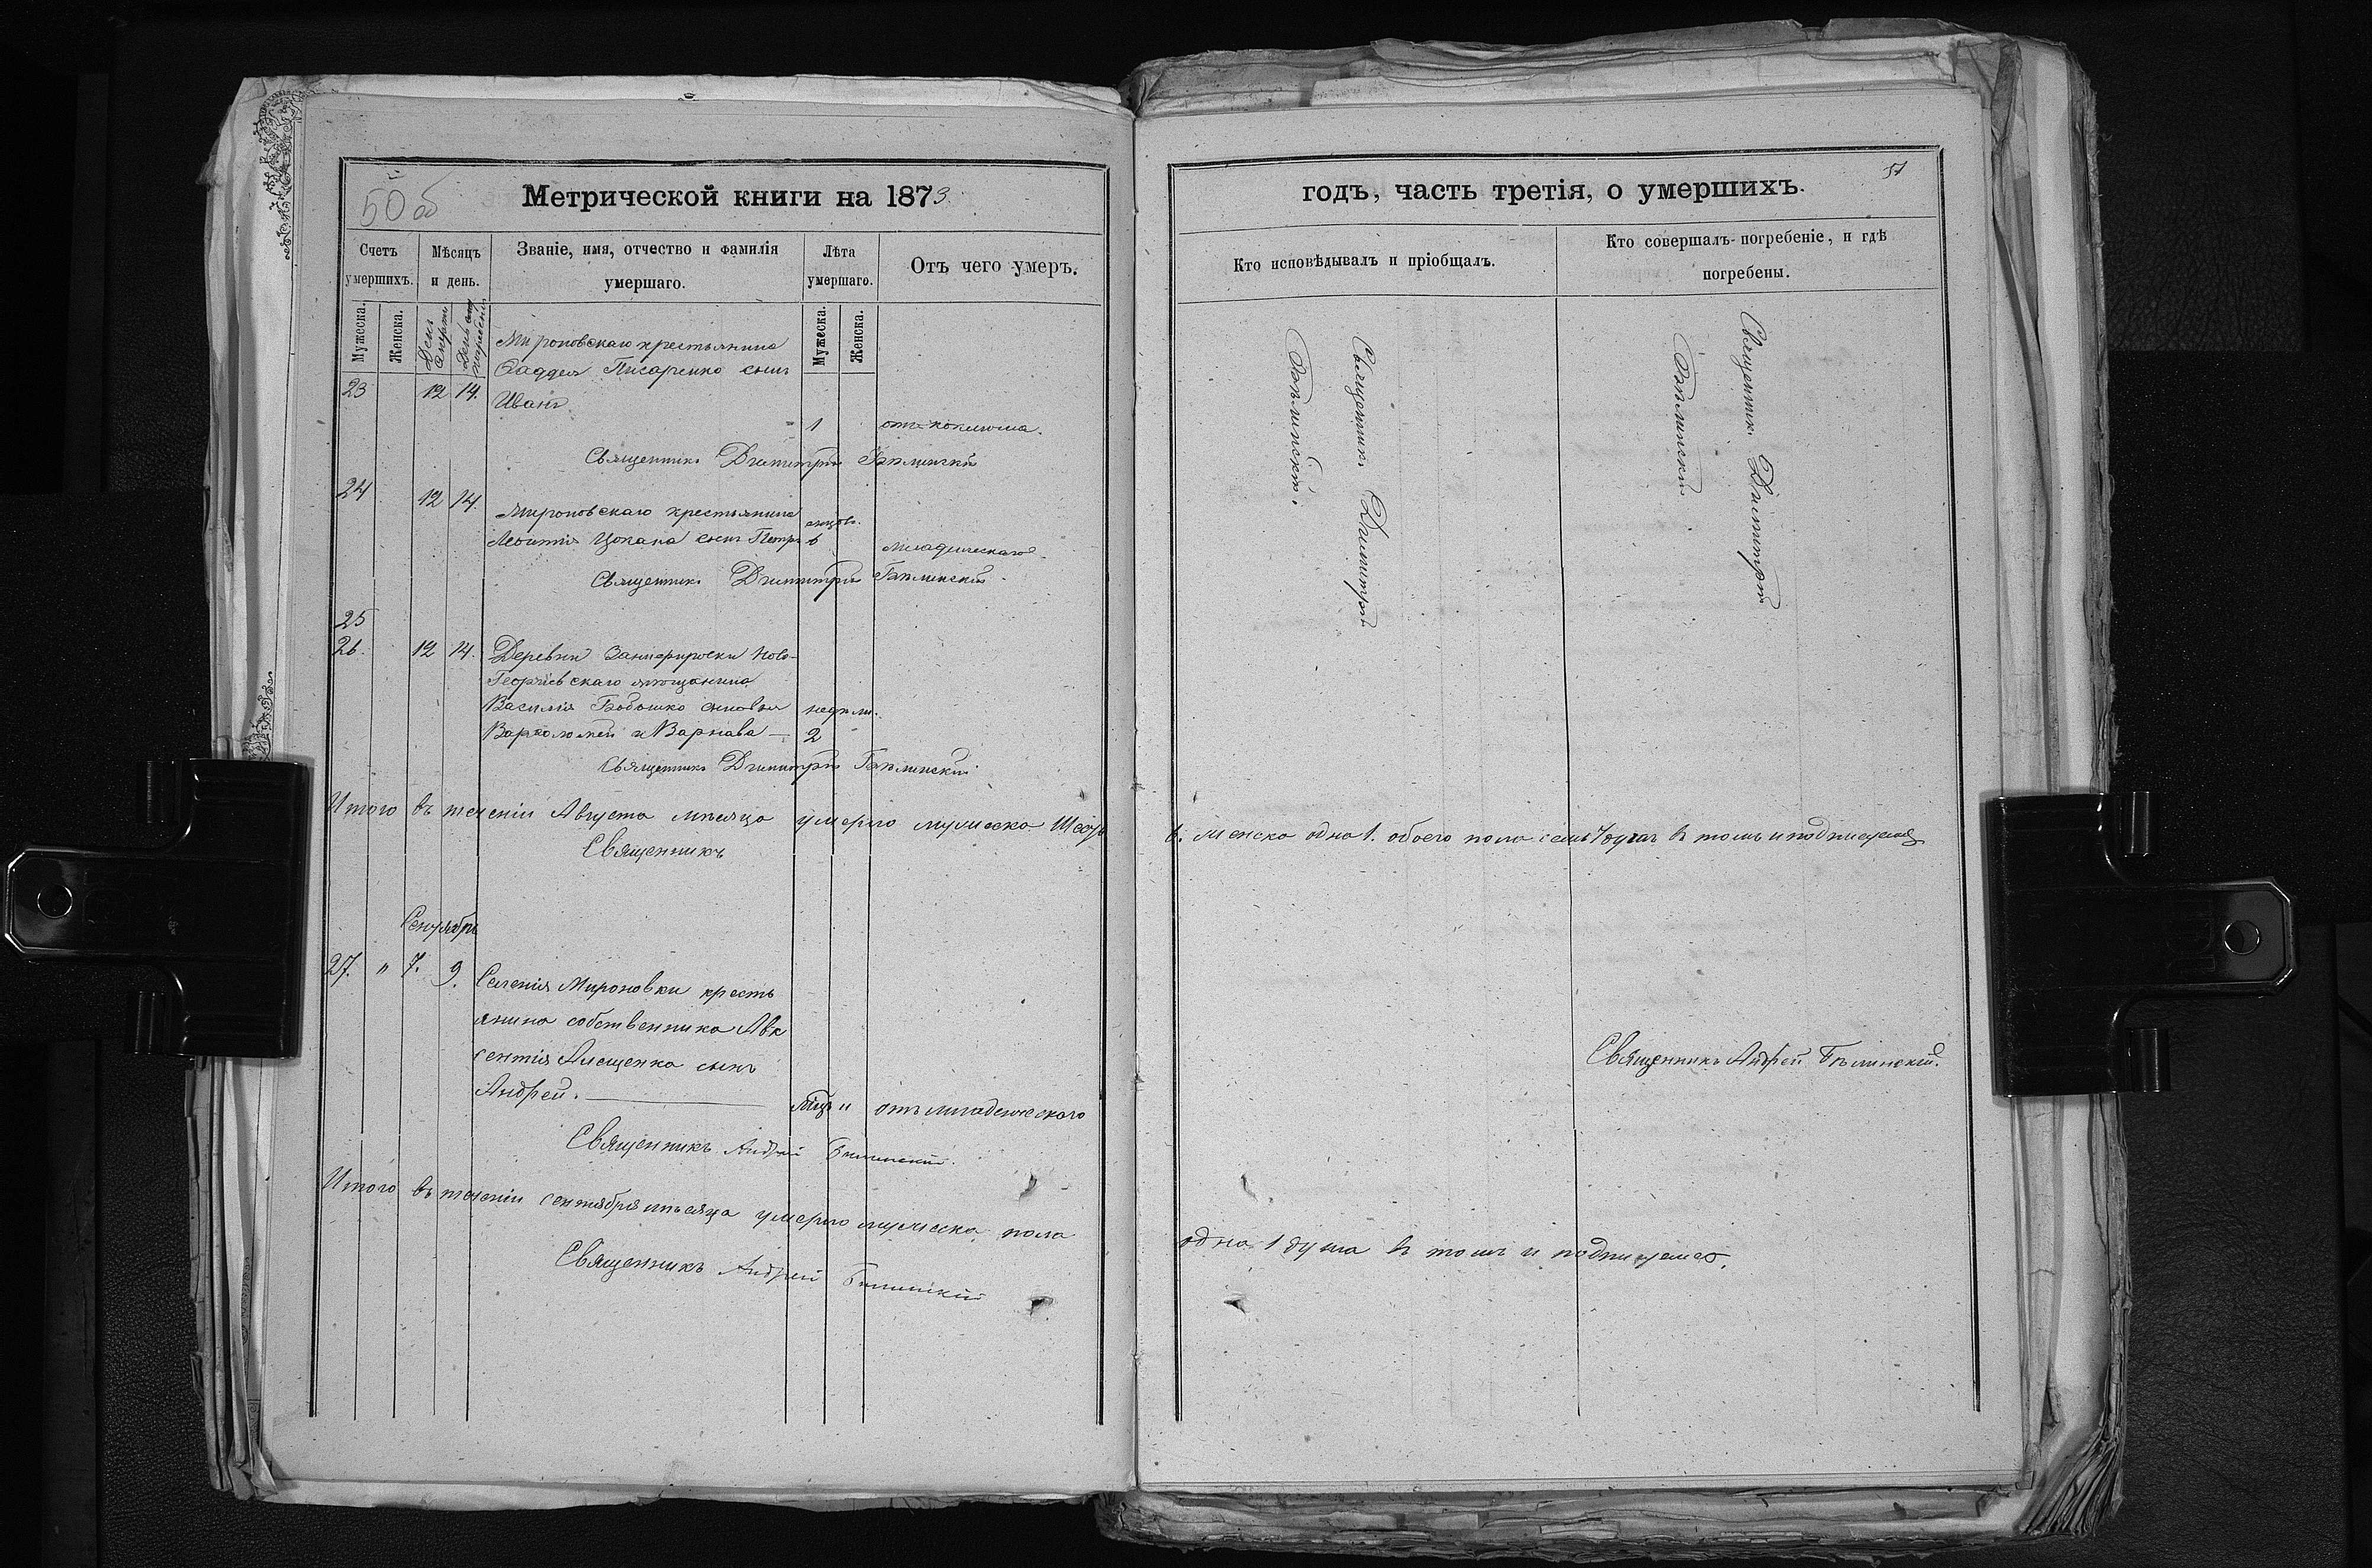 50 об
Метрической книги на 1873
Счетъ
умершихъ.
Мѣсяцъ
и день.
Званіе, имя, отчество и фамилія
умершаго.
Лѣта
умершаго.
Отъ чего умеръ.
Мужеска.
Женска.
День
Смерти
День
погребенія
Мужеска.
Женска.
Мироновскаго крестьянина
Фаддея Писаренко сынъ
23 12 14. Иванъ.
1 отъ коклюша.
Священникъ Димитрій Бѣлинскій
24 12 14. Мироновскаго крестьянина
Леонтія Цокана сынъ Петръ 6 младенческаго
Священникъ Димитрій Бѣлинскій.
25
26. 12 14. Деревни Ново-
Георгіевскаго мѣщанина
Василія Бобошко сыновья недѣли.
Варѳоломей и Варнава — 2
Священникъ Димитрій Бѣлинскій
Итого въ теченіи Августа мѣсяца умерло мужеска шесть
Священникъ
Сентябрь
27. " 7. 9. Селенія Мироновки кресть
янина собственника Авк
сентія Лященка сынъ
Андрей. " отъ младенческаго
Священникъ Андрей Бѣлинскій.
Итого въ теченіи сентября мѣсяца умерло мужеска пола
Священникъ Андрей Бѣлинскій
51
годъ, часть третія, о умершихъ.
Кто исповѣдывалъ и пріобщалъ.
Кто совершалъ погребеніе, и гдѣ
погребены.
Священникъ Димитрій
Бѣлинскій.
Священникъ Димитрій
Бѣлинскій
6. женска одна 1. обоего пола семь 7 душъ въ томъ и подписуемся
Священникъ Андрей Бѣлинскій.
одна 1 душа въ томъ и подписуемся.